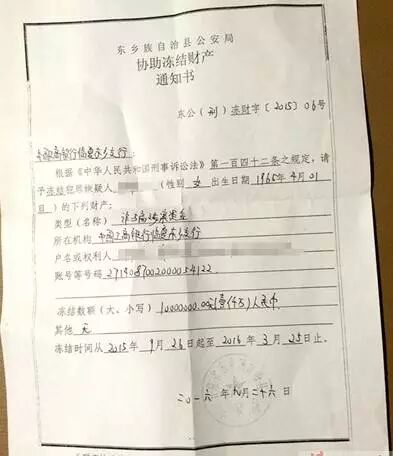 东乡族自治县公安局
协助冻结财产
通知书
东公（刑）冻财字〔2015〕06号
中国工商银行临夏东乡支行：
根据《中华人民共和国刑事诉讼法》第一百四十二条之规定，请
予冻结犯罪嫌疑人（性别 女 出生日期 1965年4月01
日 的下列财产：
类型（名称）
所在机构 中国工商银行临夏东乡支行
户名或权利人
账号等号码 2714089002000054122
冻结数额（大、小写）10000000.00（壹仟万）人民币
其他 无
冻结时间从 2015 年 9 月 26 日起至 2016 年 3 月 25 日止。
二〇一六年九月二十六日